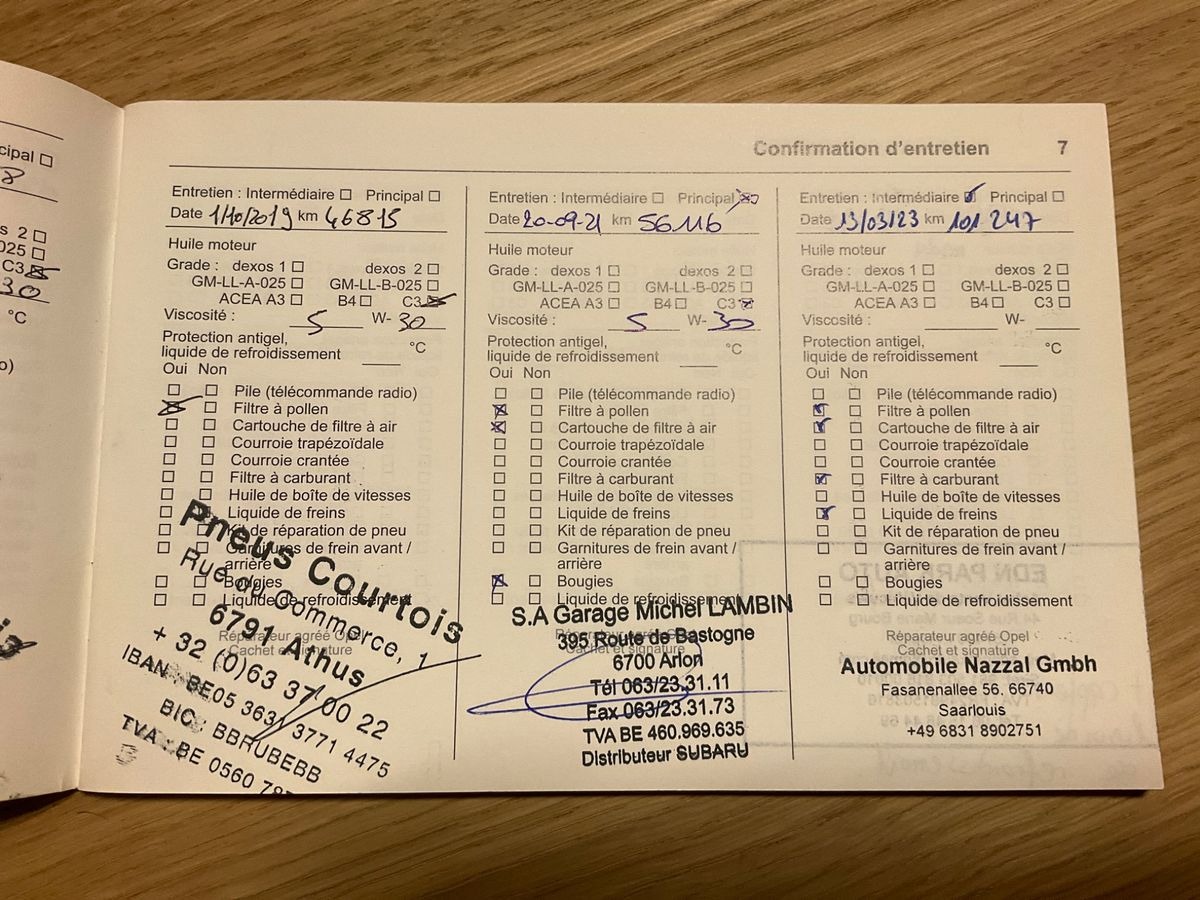 cipal
8
s 2
025
C3
30
°C
o)
Confirmation d'entretien 7
Entretien : Intermédiaire Principal
Date 1/10/2019 km 46815
Huile moteur
Grade : dexos 1 dexos 2
GM-LL-A-025 GM-LL-B-025
ACEA A3 B4 C3
Viscosité : 5 W- 30
Protection antigel,
liquide de refroidissement °C
Oui Non
Pile (télécommande radio)
Filtre à pollen
Cartouche de filtre à air
Courroie trapézoïdale
Courroie crantée
Filtre à carburant
Huile de boîte de vitesses
Liquide de freins
Kit de réparation de pneu
Garnitures de frein avant /
arrière
Bougies
Liquide de refroidissement
Réparateur agréé Opel
Cachet et signature
Pneus Courtois
Rue du Commerce, 1
6791 Athus
+ 32 (0)63 37 00 22
IBAN : BE05 363 3771 4475
BIC : BBRUBEBB
TVA : BE 0560
Entretien : Intermédiaire Principal
Date 20-09-21 km 56116
Huile moteur
Grade : dexos 1 dexos 2
GM-LL-A-025 GM-LL-B-025
ACEA A3 B4 C3
Viscosité : 5 W- 30
Protection antigel,
liquide de refroidissement °C
Oui Non
Pile (télécommande radio)
Filtre à pollen
Cartouche de filtre à air
Courroie trapézoïdale
Courroie crantée
Filtre à carburant
Huile de boîte de vitesses
Liquide de freins
Kit de réparation de pneu
Garnitures de frein avant /
arrière
Bougies
Liquide de refroidissement
Réparateur agréé Opel
Cachet et signature
S.A Garage Michel LAMBIN
395 Route de Bastogne
6700 Arlon
Tél 063/23.31.11
Fax 063/23.31.73
TVA BE 460.969.635
Distributeur SUBARU
Entretien : Intermédiaire Principal
Date 13/03/23 km 101 247
Huile moteur
Grade : dexos 1 dexos 2
GM-LL-A-025 GM-LL-B-025
ACEA A3 B4 C3
Viscosité : W-
Protection antigel,
liquide de refroidissement °C
Oui Non
Pile (télécommande radio)
Filtre à pollen
Cartouche de filtre à air
Courroie trapézoïdale
Courroie crantée
Filtre à carburant
Huile de boîte de vitesses
Liquide de freins
Kit de réparation de pneu
Garnitures de frein avant /
arrière
Bougies
Liquide de refroidissement
Réparateur agréé Opel
Cachet et signature
Automobile Nazzal Gmbh
Fasanenallee 56. 66740
Saarlouis
+49 6831 8902751